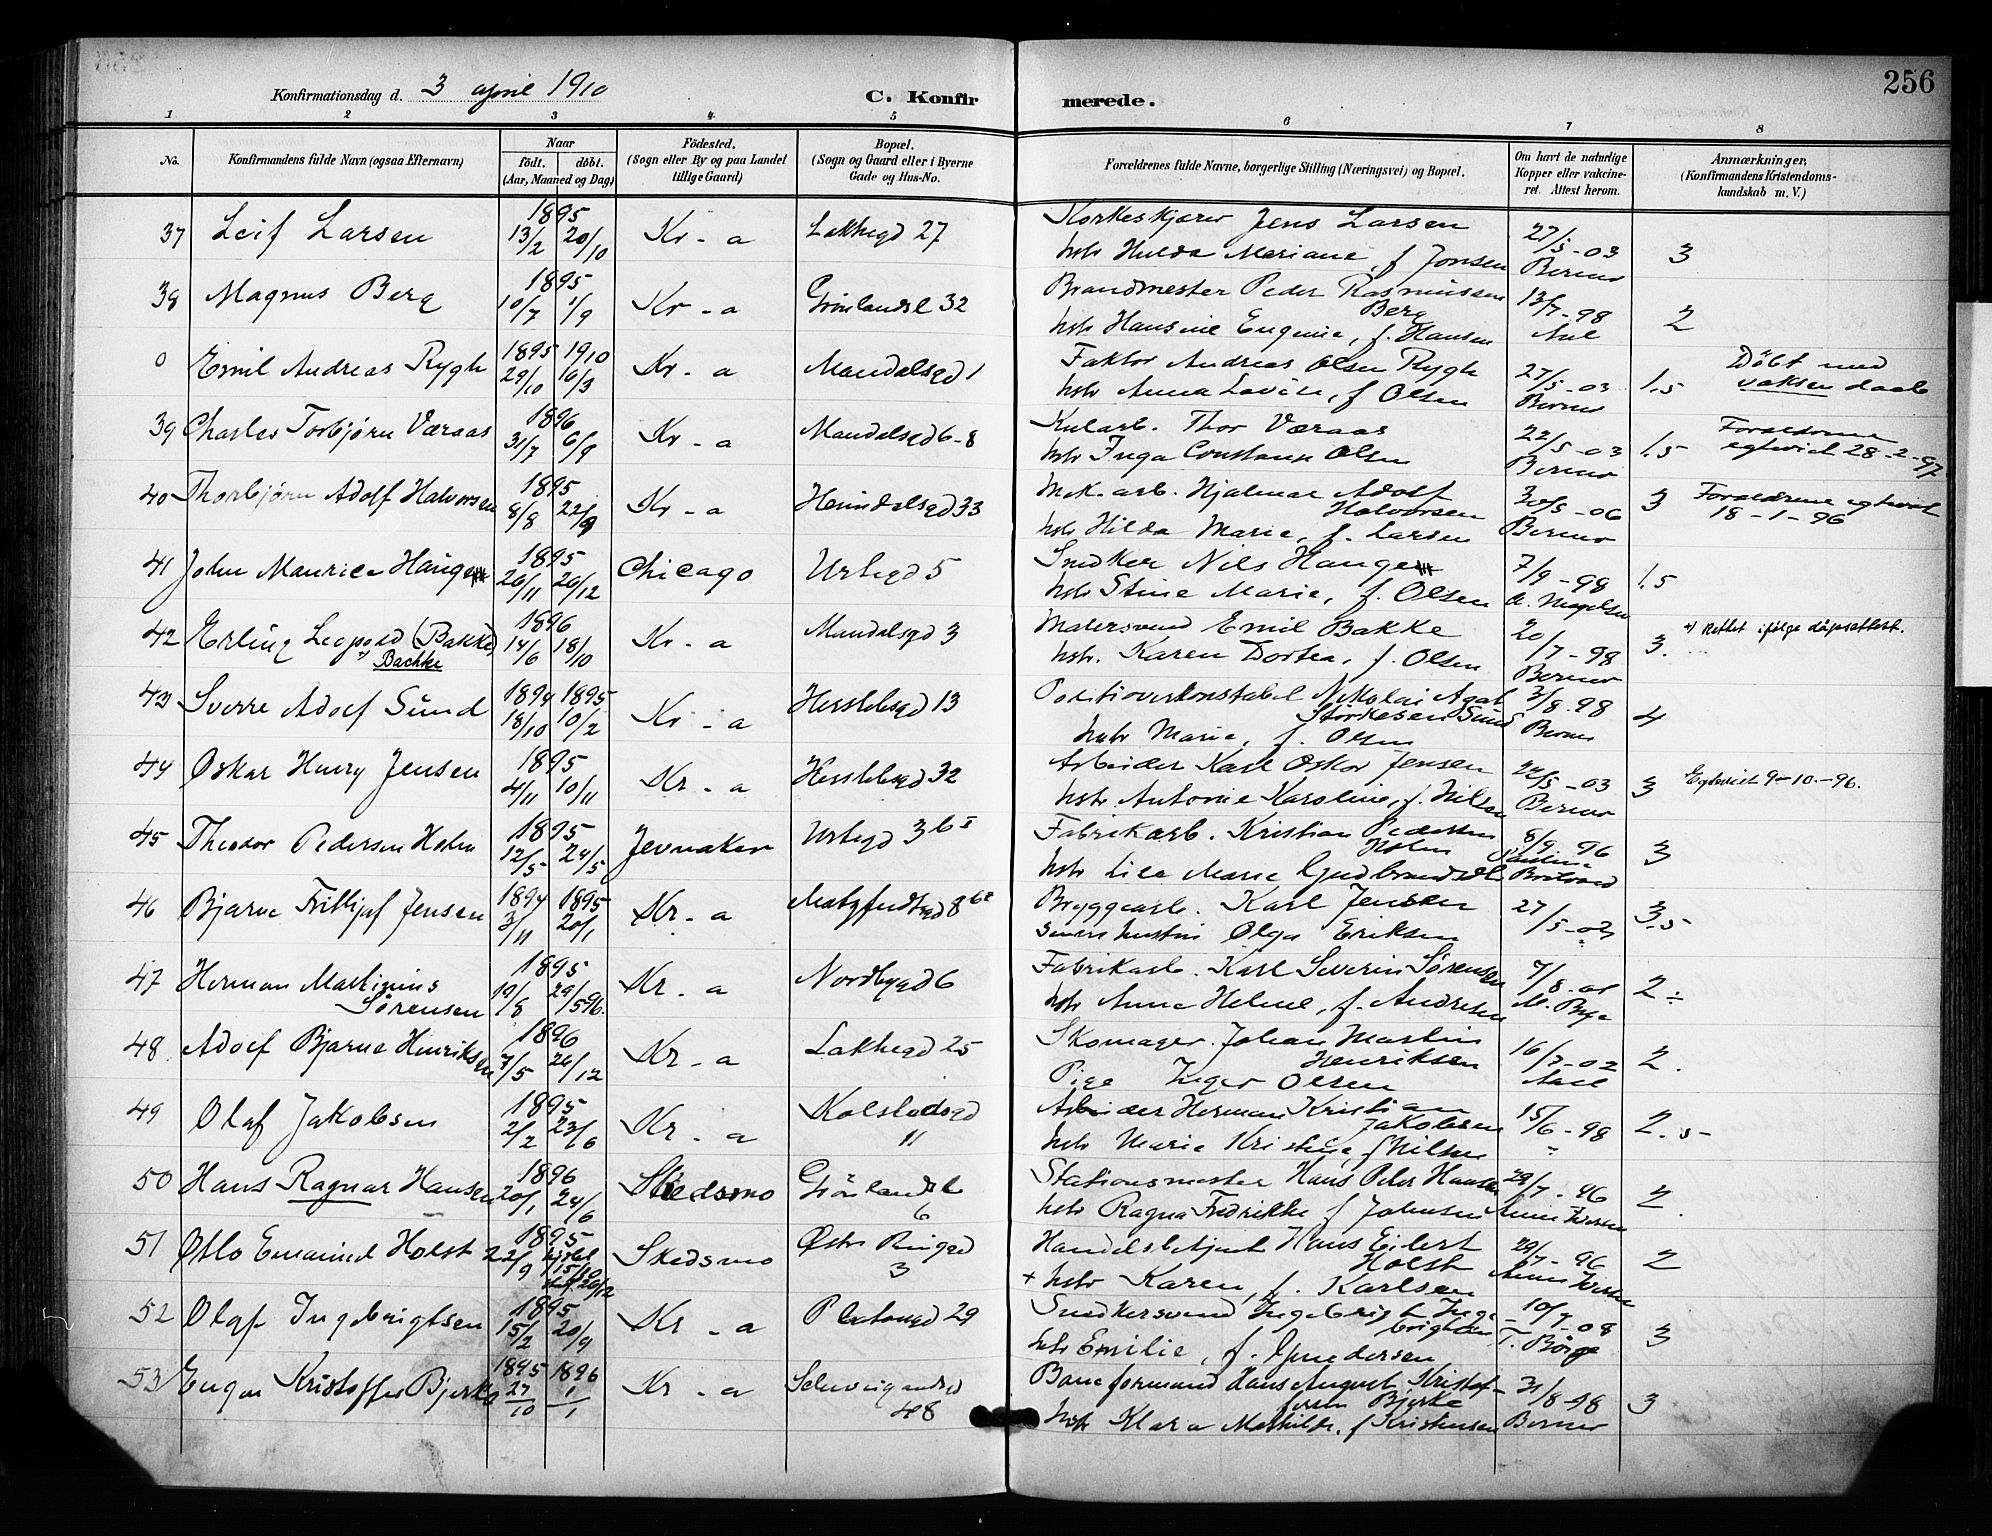 256
Konfirmationsdag d. 3 april 1910
C. Konfirmerede.
1 2 3 4 5 6 7 8
No.
Konfirmandens fulde Navn (ogsaa Efternavn)
Naar
født. døbt.
(Aar, Maaned og Dag)
Födested.
(Sogn eller By og paa Landet
tillige Gaard)
Bopæl.
(Sogn og Gaard eller i Byerne
Gade og Hus-No.
Forældrenes fulde Navne, borgerlige Stilling (Næringsvei) og Bopæl.
Om havt de naturlige
Kopper eller vakcine-
ret. Attest herom.
Anmærkninger.
(Konfirmandens Kristendoms-
kundskab m. V.)
37 Leif Larsen 1895 13/2 20/10 Kr-a Lakkegd 27 Jens Larsen
hstr Hulda Mariane, f Jonsen 27/5-03 Berner 3
38 Magnus Berg 1895 10/7 1/9 Kr-a Grönlandsl 32 Brandmester Peder Rasmussen
Berg
hstr Hansine Eugenie, f. Hansen 13/7-98 2
0 Emil Andreas Rygh 1895 29/10 1910 16/3 Kr-a Mandalsgd 1 Faktor Andreas Olsen Rygh
hstr Anna Lovise, f Olsen 27/5-03 Berner 1.5 Döbt med
voksen daab
39 Charles Torbjørn Væraas 1896 31/7 6/9 Kr-a Mandalsgd 6-8 Kularb. Thor Væraas
hstr Inga Constanse Olsen 22/5-03 Berner 1.5 Forældrene
egteviet 28-2-97
40 Thorbjørn Adolf Halvorsen 1895 8/8 22/9 Kr-a Heimdalsgd 33 Mek.arb. Hjalmar Adolf
Halvorsen
hstr Hilda Marie, f. Larsen 30/5-06 Berner 3 Forældrene egteviet
18-1-96
41 John Maurice Hauge 1895 26/11 26/12 Chicago Urtegd 5 Snedker Nils Hauge
hstr Stine Marie, f. Olsen 7/9-98 1.5
42 Erling Leopold (Bakke) 1896 14/6 18/10 Kr-a Mandalsgd 3 Malersvend Emil Bakke
x) Bachke
hstr. Karen Dortea, f. Olsen 20/7-98 Berner 3. x) Rettet ifølge dåpsattest.
43 Sverre Adolf Sund 1894 18/10 1895 10/2 Kr-a Herslebsgd 13 Politioverkonstabel Nikolai Agat
Störkesen Sund
hstr Marie, f. Olsen 3/8.98 Berner 4
44 Oskar Henry Jensen 1895 4/11 10/11 Kr-a Herslebsgd 32 Arbeider Karl Oskar Jensen
hstr Antonie Karoline, f. Nilsen 22/5-03 Berner 3 Egteviet 9-10-96.
45 Theodor Pedersen Holm 1895 12/5 24/5 Jevnaker Urtegd 3 b I Fabrikarb. Kristian Pedersen
Holm
hstr Lise Marie 8/9 96 3
46 Bjarne Frithjof Jensen 1894 3/11 1895 20/1 Kr-a Bryggearb. Karl Jensen
Olga Eriksen 27/5-03 3.5
47 Herman Martinius
Sørensen 1895 19/8 29/5 96. Kr-a Nordbygd 6 Fabrikarb. Karl Severin Sørensen
hstr Anna Helene, f. Andresen 7/8-01 2 ÷
48 Adolf Bjarne Henriksen 1896 7/5 26/12 Kr-a Lakkegd 25 Skomager. Johan Martin
Henriksen
Pige Inger Olsen 16/7-02 2.
49 Olaf Jakobsen 1895 2/2 23/6 Kr-a Kolstadsgd
11 Arbeider Herman Kristian
Jakobsen
hstr Marie Kristine, f Nilsen 15/6-98 2.5
50 Hans Ragnar Hansen 1896 20/1 24/6 Skedsmo Grönlandsl
6 Stationsmester Hans Peter Hansen
hstr Ragna Fredrikke f Johnsen 29/7-96 2.
51 Otto Emanuel Holst 1895 22/9 15/10 26/12 Skedsmo Østr Ringgd
3 Handelsbetjent Hans Eilert
Holst
+ hstr Karen, f. Karlsen 29/7-96 2
52 Olaf Ingebrigtsen 1895 15/2 20/9 Kr-a Platousgd 29 Snedkersvend Ingebrigt Inge-
brigtsen
hstr Emilie, f. Gundersen 10/7-08 3
53 Eugen Kristoffer Bjerke 1895 27/10 1896 1/1 Kr-a Schweigaardsgd
48 Baneformand Hans August Kristof-
fersen Bjerke
hstr Klara Mathilde, f Kristensen 31/8-98 Berner 3